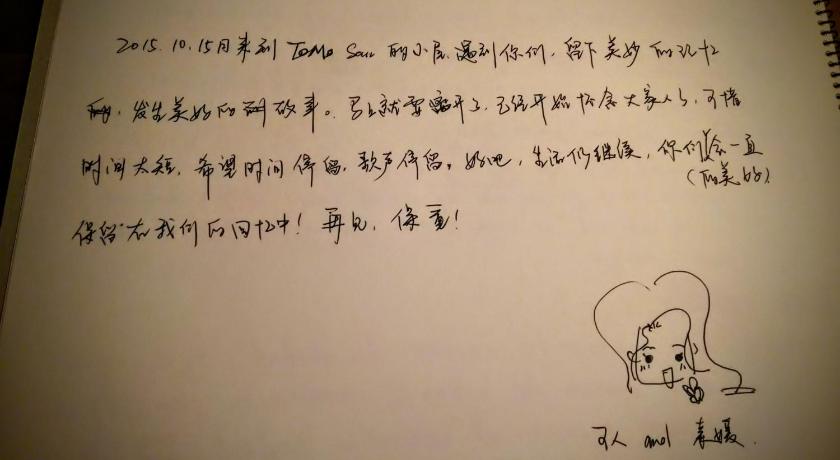 2015.10.15日来到 Tomo San 的小屋,遇到你们,留下美妙的记忆
,发生美好的故事。马上就要离开了,已经开始怀念大家了,可惜
时间太短,希望时间停留,歌声停留。好吧,生活仍继续,你们会一直
(的美好)
保留在我们的回忆中!再见,保重!
可人 and